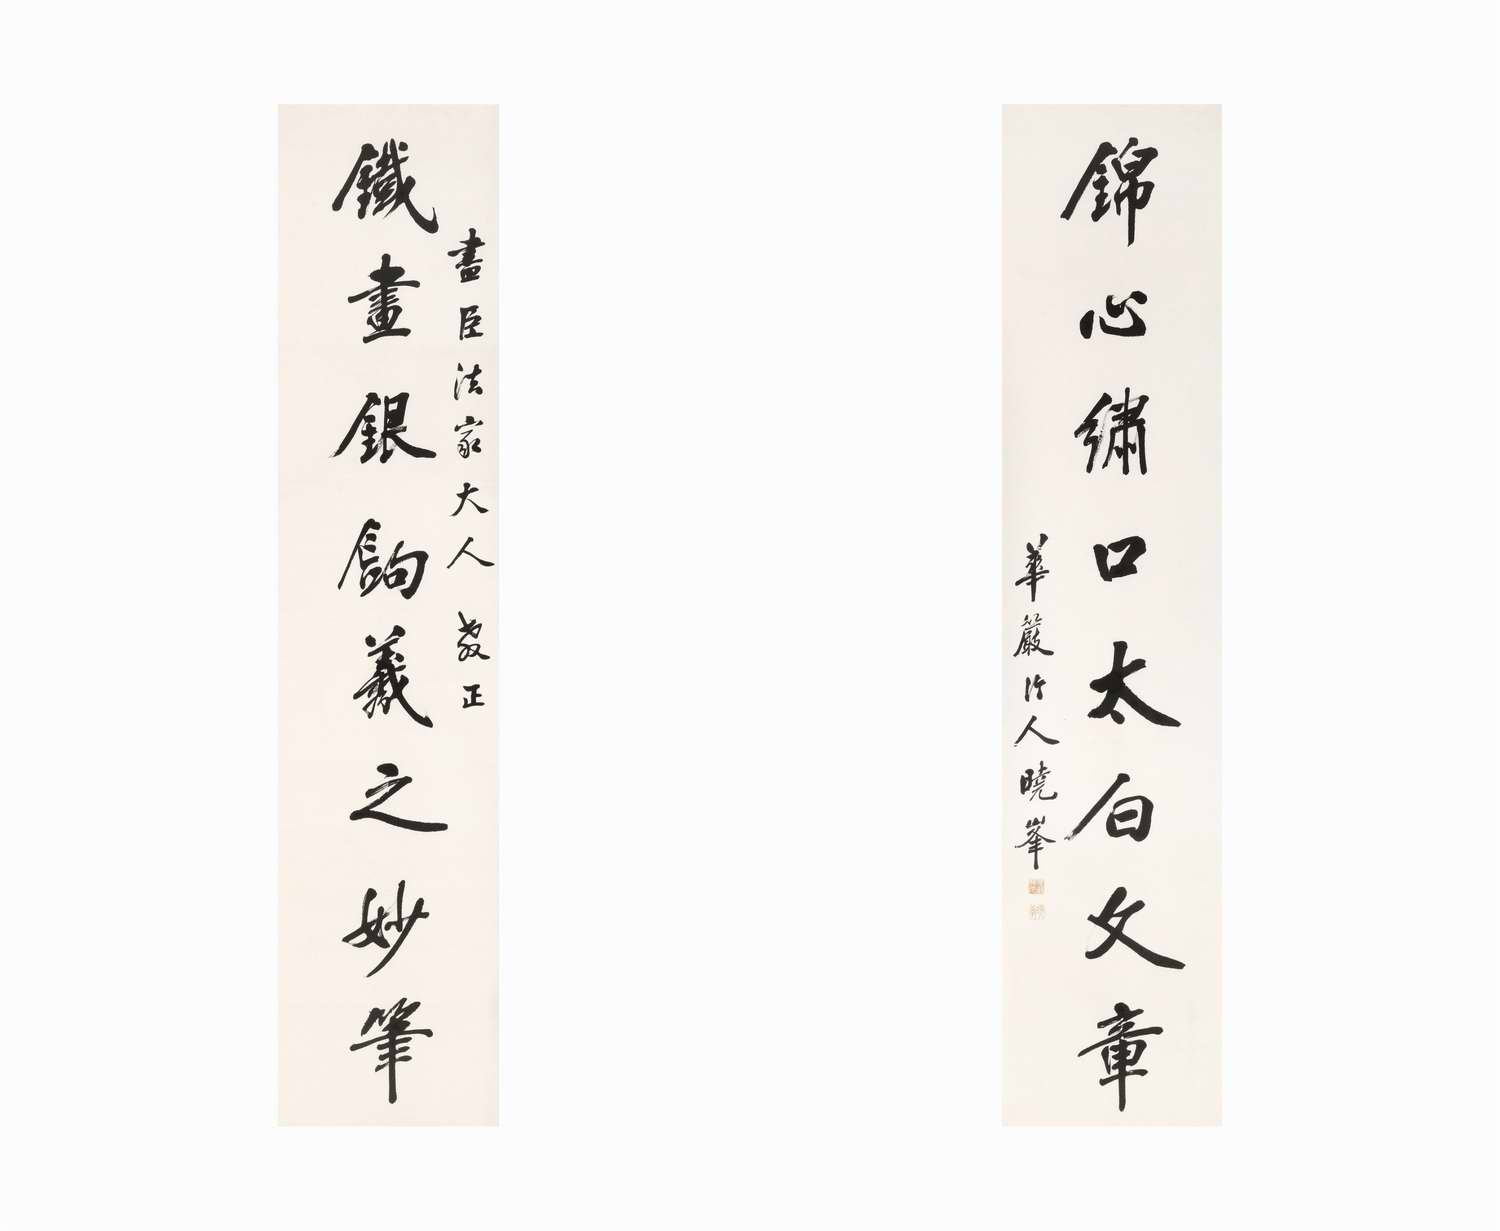 盡臣法家大人教正
鐵畫銀鉤羲之妙筆
錦心繡口太白文章
華嚴竹人曉峯